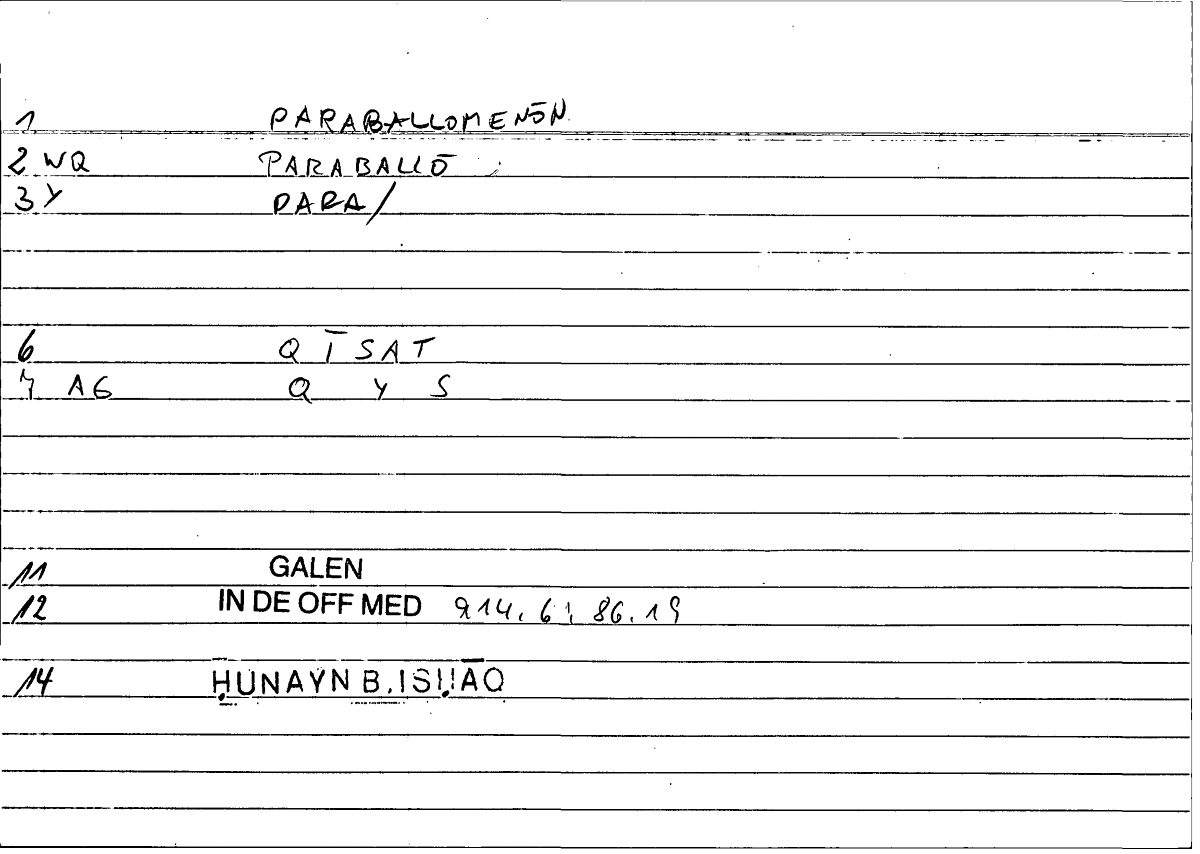 1 PARABALLOMENŌN
2 WQ PARABALLŌ
3 Y PARA/
6 Q Ī S A T
7 AG Q Y S
11 GALEN
12 IN DE OFF MED 914.6; 86.19
14 ḤUNAYN B. ISḤĀQ